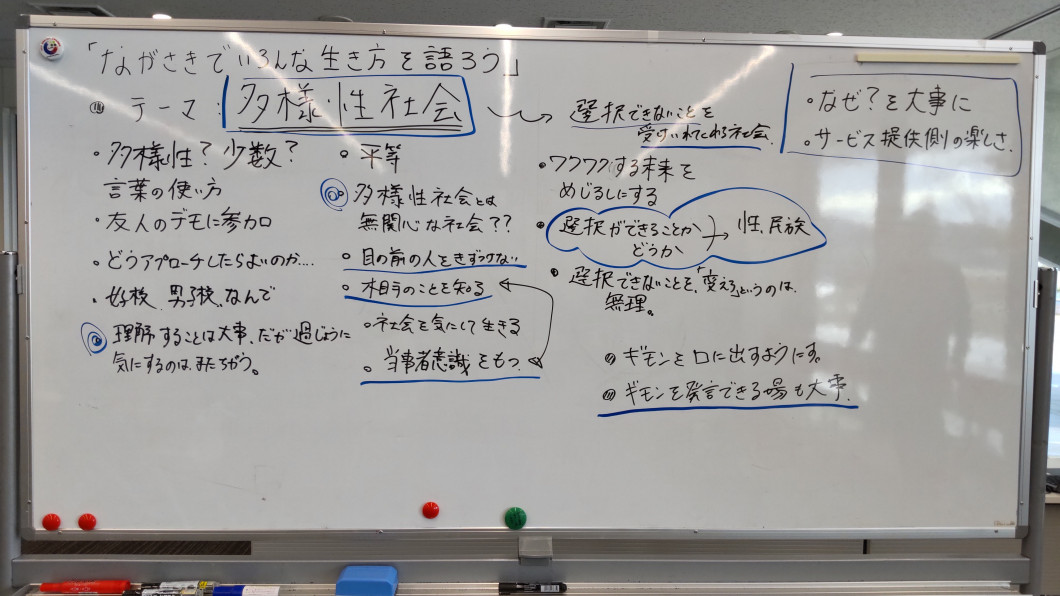 「ながさきでいろんな生き方を語ろう」
テーマ：多様性社会
・多様性？少数？
言葉の使い方
・友人のデモに参加
・どうアプローチしたらよいのか....
・女子校、男子校、なんで
理解することは大事、だが過じように
気にするのは、またちがう。
・平等
多様性社会とは
無関心な社会？？
・目の前の人をきずつけない
・相手のことを知る
・社会を気にして生きる
。当事者意識をもつ
選択できないことを
受けいれてくれる社会
・ワクワクする未来を
めじるしにする
・選択ができることか
どうか
→ 性、民族
・選択できないことを、「変えろ」というのは、
無理。
ギモンを口に出すようにす。
ギモンを発言できる場も大事.
・なぜ？を大事に
。サービス提供側の楽しさ.